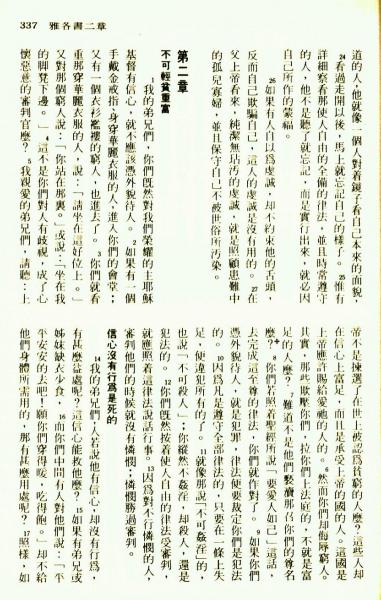 337　雅各書二章
道的人，他就像一個人對着鏡子看自己本來的面貌，
24看過走開以後，馬上就忘記自己的樣子。25惟有
詳細察看那使人自由的全備的律法，並且時常遵守
的人，他不是聽了就忘記，而是實行出來，就必因
自己所作的蒙福。
26如果有人自以爲虔誠，却不約束他的舌頭，
反而自己欺騙自己，這人的虔誠是沒有用的。27在
父上帝看來，純潔無玷污的虔誠，就是照顧患難中
的孤兒寡婦，並且保守自己不被世俗所污染。
第二章
不可輕貧重富
1我的弟兄們，你們旣然對我們榮耀的主耶穌
基督有信心，就不應該憑外貌待人。2如果有一個
手戴金戒指、身穿華麗衣服的人，進入你們的會堂；
又有一個衣衫襤褸的窮人，也進去了。3你們就看
重那穿華麗衣服的人，說：「請坐在這好位上。」
又對那個窮人說：「你站在那裏。」或說：「坐在我
的脚凳下邊。」4這不是你們對人有歧視，成了心
懷惡意的審判官麼？5我親愛的弟兄們，請聽：上
帝不是揀選了在世上被認爲貧窮的人麼？這些人却
在信心上富足，而且是承受上帝的國的人。這國是
上帝應許賜給愛祂的人的。6然而你們却侮辱窮人。
其實，那些欺壓你們，拉你們上法庭的，不就是富
足的人麼？7難道不是他們褻瀆那召你們的尊名
麼？8你們若照着聖經所說「要愛人如己」這話，
去完成這至尊的律法，你們就作對了。9如果你們
憑外貌待人，就是犯罪，律法便要裁定你們是犯法
的。10因爲凡是遵守全部律法的，只要在一條上失
足，便違犯所有的了。11就像那說「不可姦淫」的，
也說「不可殺人」；你縱然不姦淫，却殺人，還是
犯法的。12你們旣然按着使人自由的律法受審判，
就應照着這律法說話行事。13因爲對不行憐憫的人，
審判他們的時候就沒有憐憫；憐憫勝過審判。
信心沒有行爲是死的
14我的弟兄們，人若說他有信心，却沒有行爲，
有甚麼益處呢？這信心能救他麼？15如果有弟兄或
姊妹缺衣少食，16而你們中間有人對他們說：「平
平安安的去吧！願你們穿得暖，吃得飽。」却不給
他們身體所需用的，那有甚麼用處呢？17照樣，如